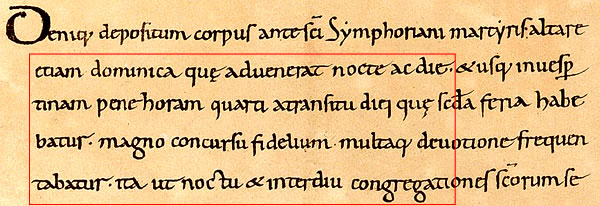 Deniq; depositum corpus ante sc̄i Symphoriani martyris altare
etiam dominica quę aduenerat nocte ac die · & usq; in uesp̄
tinam pene horam quarti a transitu diei quę scd̄a feria habe
batur · magno concursu fidelium · multaq; deuotione frequen
tabatur · ita ut noctu & interdiu congregationes sc̄orum se